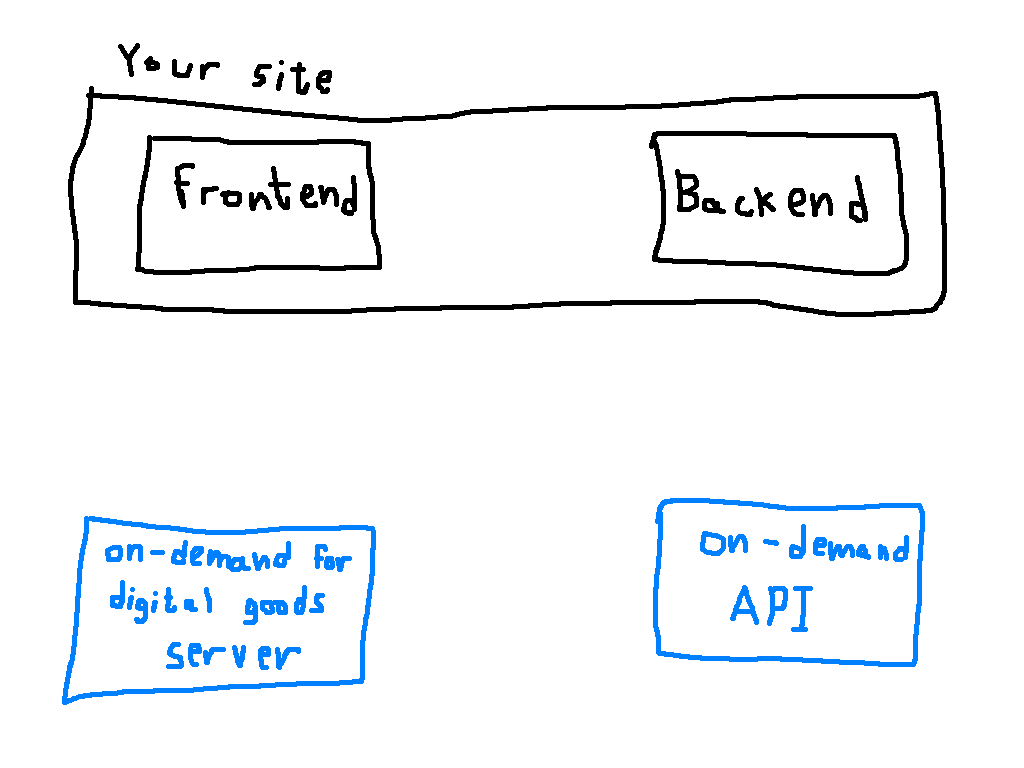 Your site
Frontend
Backend
on-demand for
digital goods
server
on-demand
API